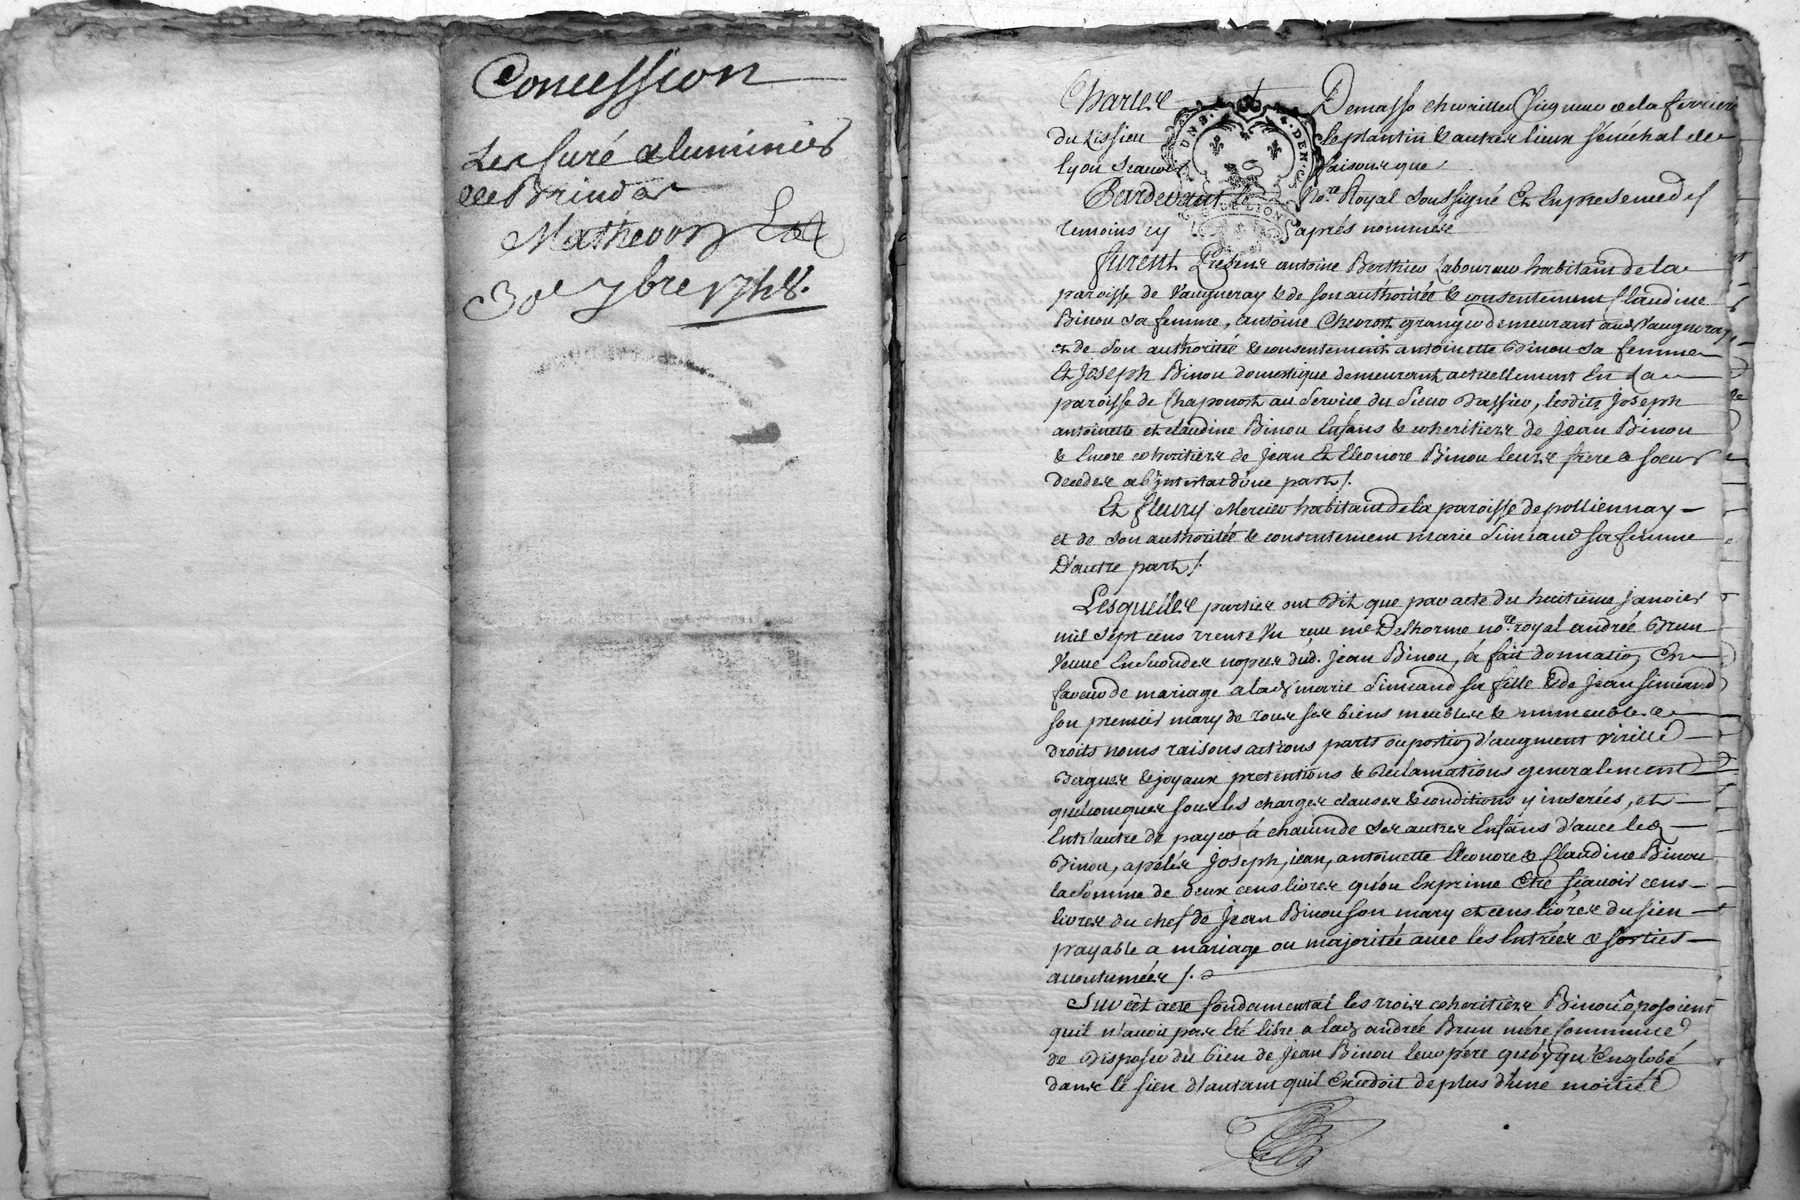 Concession
Les Curé & luminier
de Brindas
Mathevon
30e 7bre 1748.
Charles Demasso chevallier Seigneur de la ferriere
du Lissieu le plantin & autres lieux sénéchal de
lyon scavoir faisons que
Pardevant le No.re Royal soussigné Et En presence des
temoins cy après nommés
furent Présens antoine Berthieu Laboureur habitant de la
paroisse de Vaugneray & de son authorité & consentement Claudine
Binou sa femme, antoine Chevrot granger demeurant aud Vaugneray
et de son authorité & consentement antoinette Binou sa femme
Et Joseph Binou domestique demeurant actuellement En La
paroisse de Chaponost au service du Sieur Dassieu, lesdits Joseph
antoinette et claudine Binou Enfans & coheritiers de Jean Binou
& Encore coheritiers de Jean Et Eleonore Binou leurs frere & soeur
decedes abjntestat d'une part /.
Et fleury Mercier habitant de la paroisse de pollionnay
et de son authorité & consentement marie Simeand sa femme
D'autre part /.
Lesquelles parties ont Dit que par acte du huitieme janvier
mil sept cens trente Vn reçu me Delhorme no.re royal andrée Brun
Veuve En secondes nopces dud. Jean Binou, a fait donnation En
faveur de mariage a lad marie Simeand sa fille & de Jean Simeand
son premier mary de tous ses biens meubles & immeubles
droits noms raisons actions parts ou portion d'augment virille
Bagues & joyaux pretentions & Reclamations generalement
quelconques sous les charges clauses & conditions y inserées, et
Entr'autre de payer à chacun de ses autres Enfans d'avec led
Binou, apelés Joseph, jean, antoinette Eleonore & Claudine Binou
la somme de deux cens livres qu'on Exprime Etre sçavoir cens
livres du chef de Jean Binou son mary et cens livres du sien
payable a mariage ou majorité avec les Entrées & sorties
acoutumées /.
Sur cet acte fondamental les trois coheritiers Binou oposoient
quil n'avoit pas Eté libre a lad andrée Brun mére commune
de Disposer du bien de Jean Binou leur pére quoyqu'Englobé
dans le sien d'autant quil Excedoit de plus d'une moitié